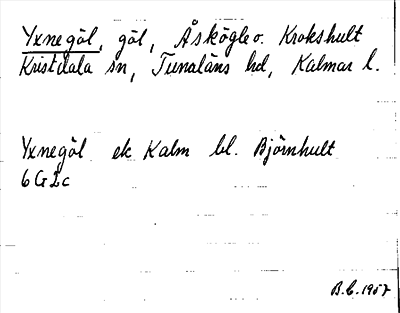 Yxnegöl, göl, Åskögle o. Krokshult
Kristdala sn, Tunaläns hd, Kalmar l.
Yxnegöl ek Kalm bl. Björnhult
6 G I c
B.C. 1957